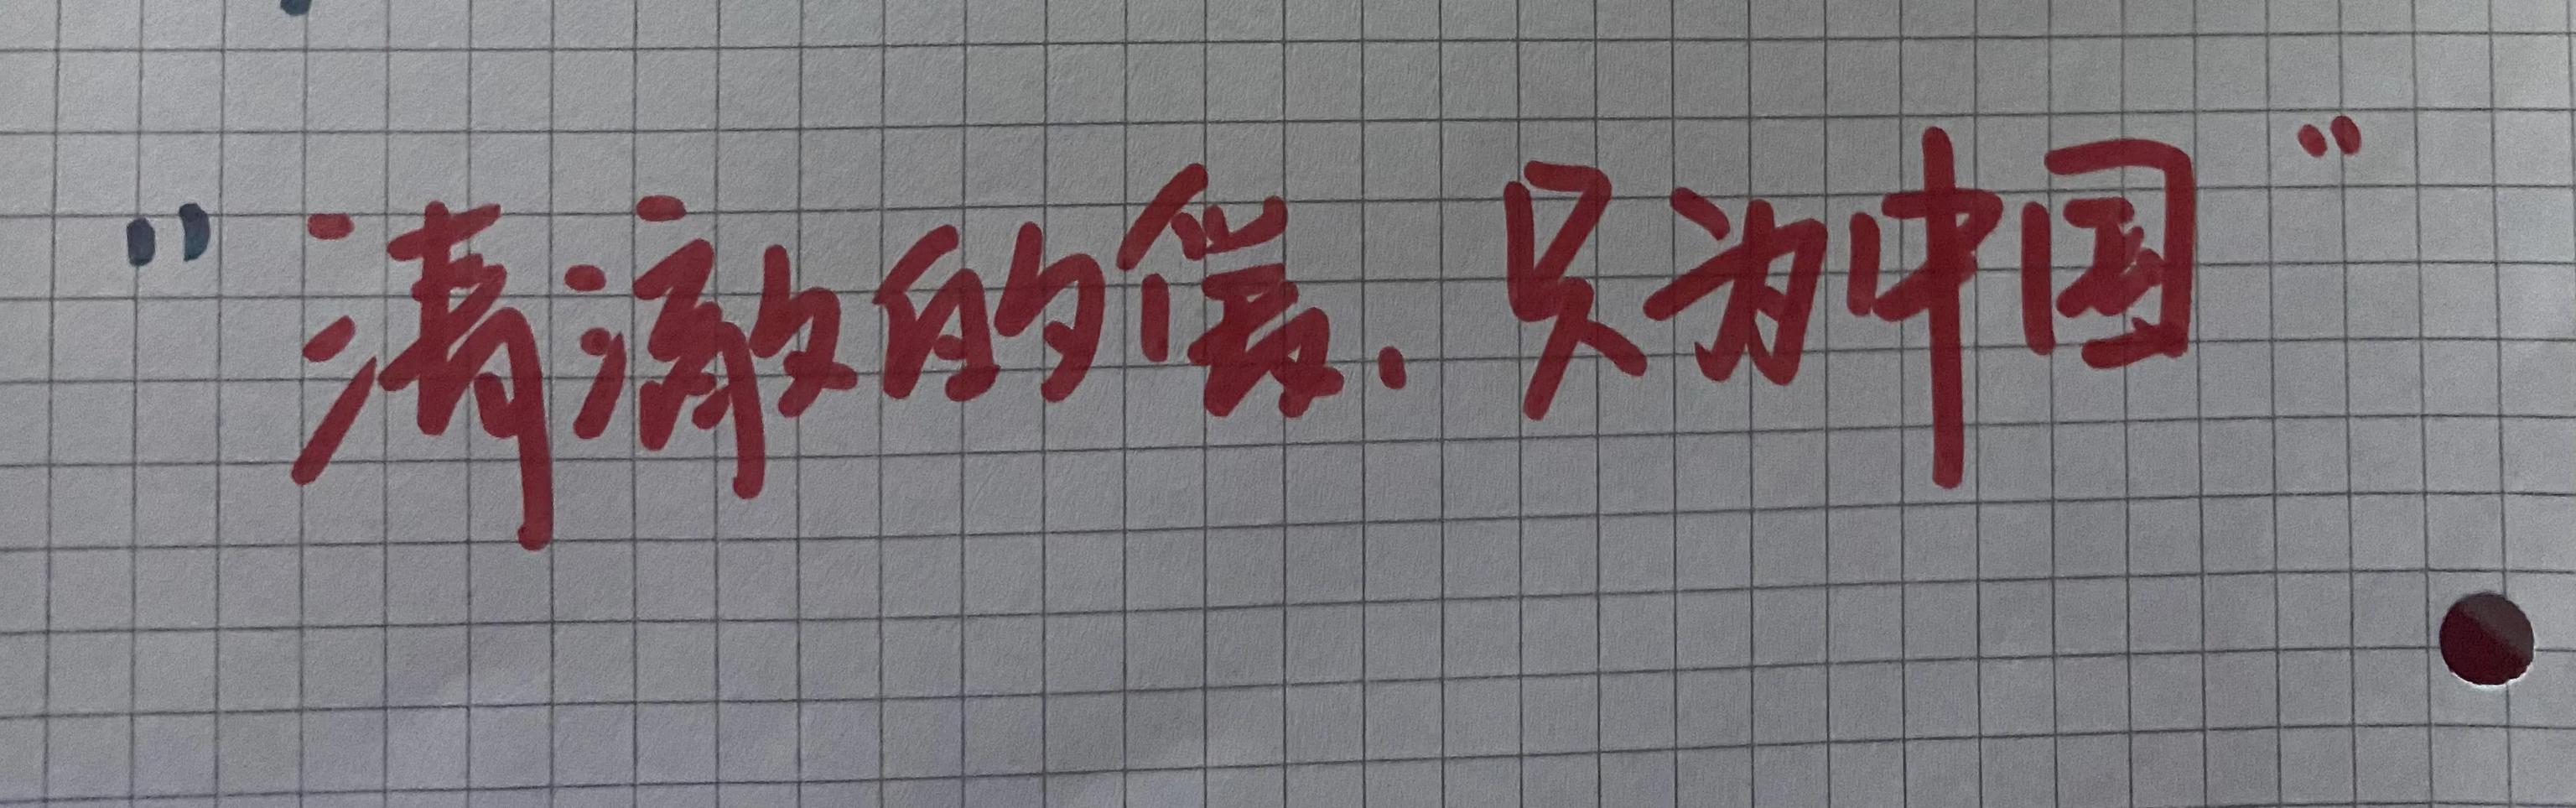 "清澈的爱.只为中国"